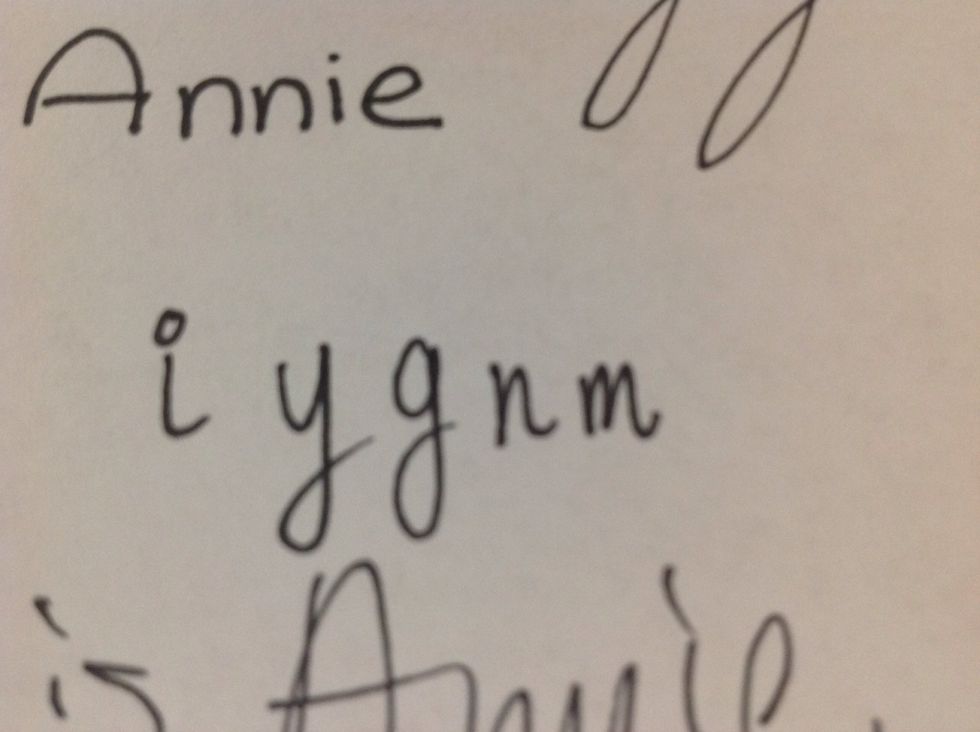 Annie
i y g n m
is Annie.